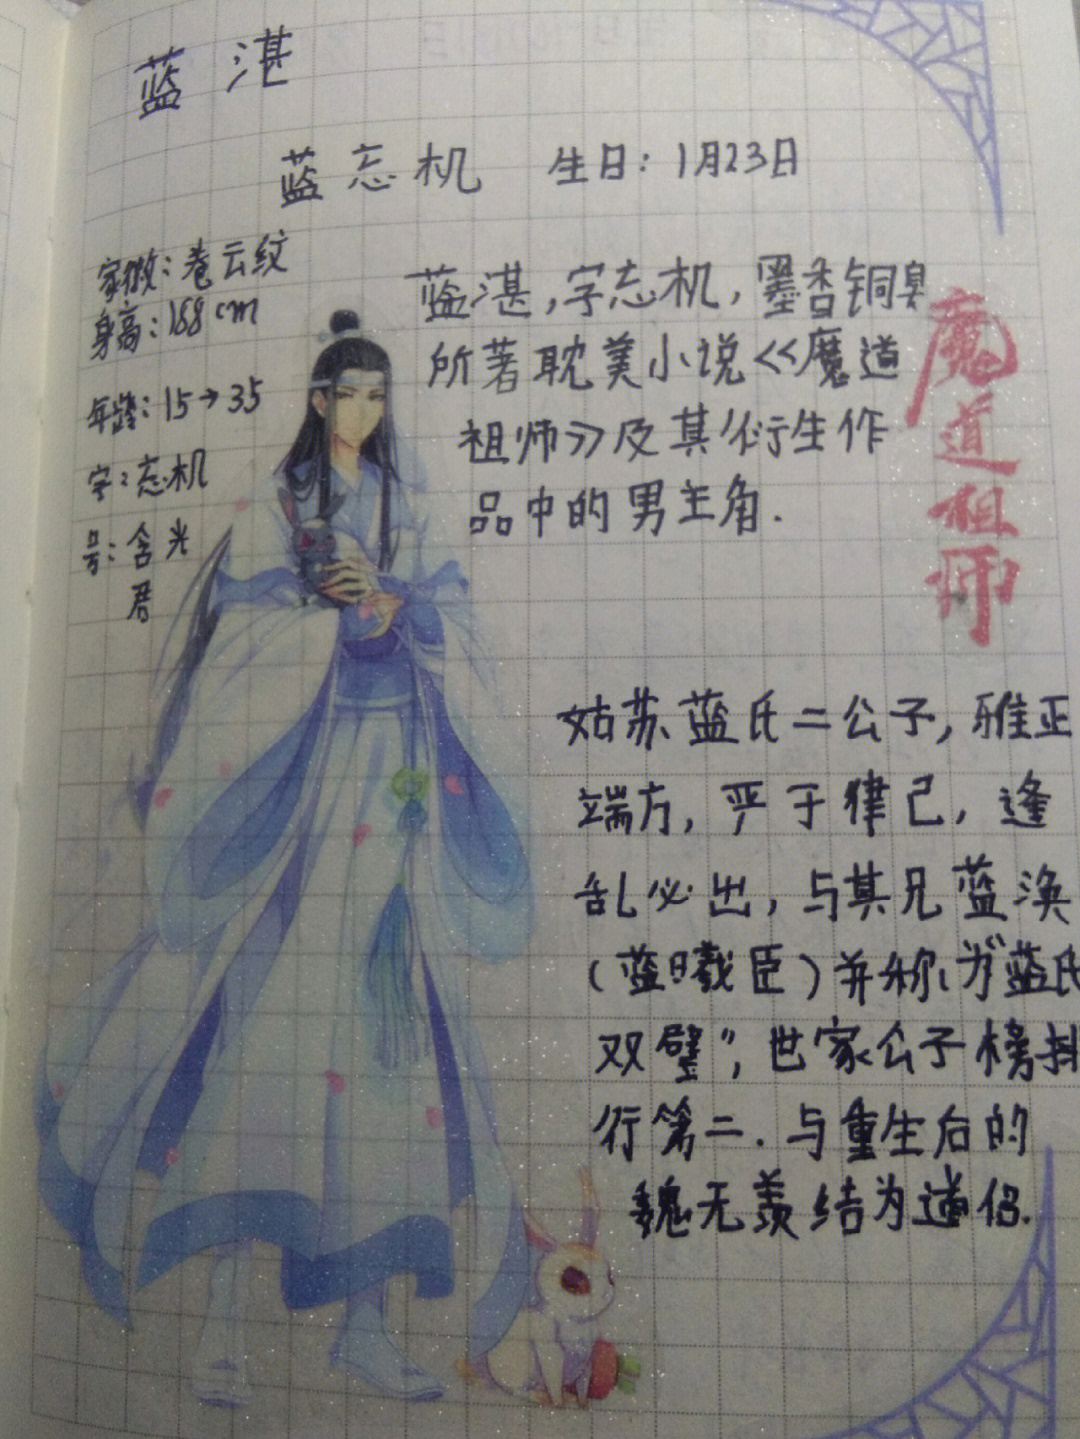 蓝湛
蓝忘机 生日：1月23日
家徽：卷云纹
身高：188cm
年龄：15→35
字：忘机
号：含光
君
蓝湛，字忘机，墨香铜臭
所著耽美小说《魔道
祖师》及其衍生作
品中的男主角.
魔道祖师
姑苏蓝氏二公子，雅正
端方，严于律己，逢
乱必出，与其兄蓝涣
（蓝曦臣）并称为“蓝氏
双璧”，世家公子榜排
行第二.与重生后的
魏无羡结为道侣.